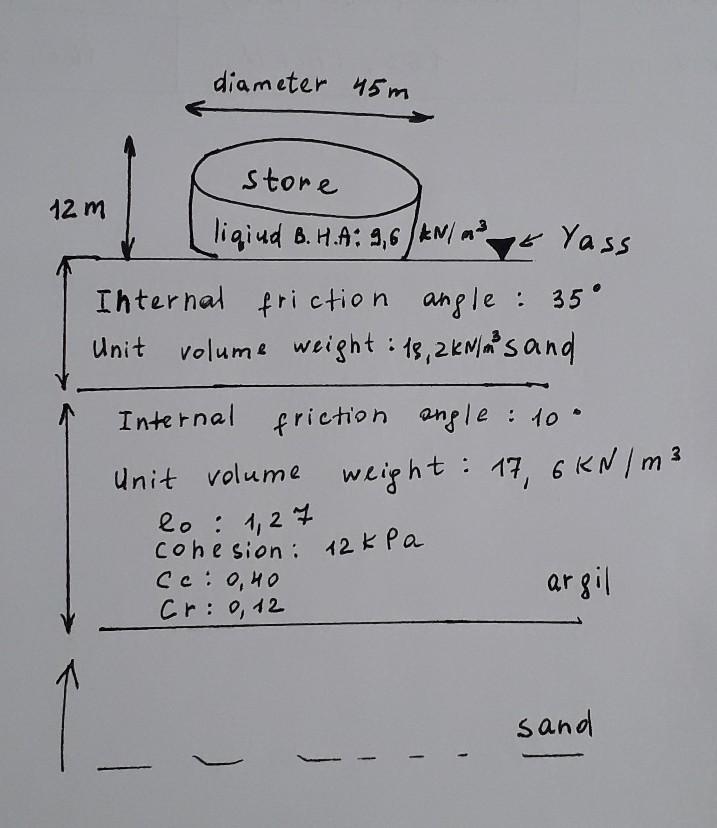 diameter 45m
store
12m
liqiud B.H.A: 9,6 kN/m³
Yass
Internal friction angle : 35°
Unit volume weight : 18,2kN/m³ sand
Internal friction angle : 10°
Unit volume weight : 17,6 KN/m³
eo : 1,27
cohesion: 12kPa
Cc : 0,40
argil
Cr : 0,12
sand